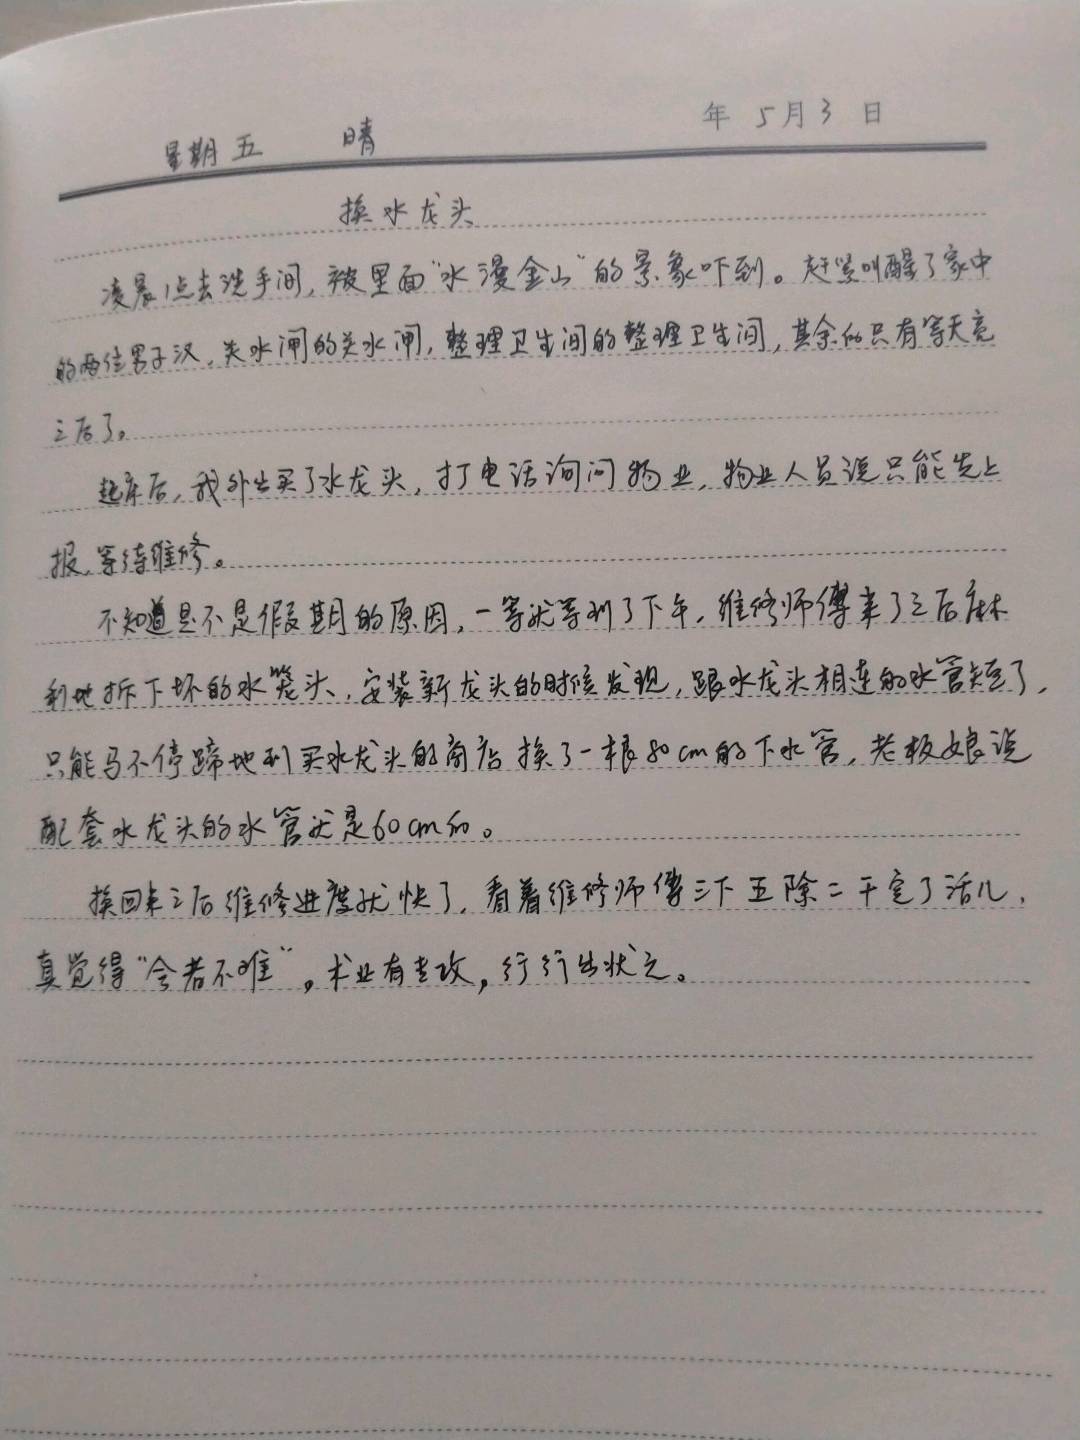 年 5月3日
星期五 晴
换水龙头
凌晨1点去洗手间,被里面“水漫金山”的景象吓到。赶紧叫醒了家中
的两位男子汉,关水闸的关水闸,整理卫生间的整理卫生间,其余的只有等天亮
之后了。
起床后,我外出买了水龙头,打电话询问物业,物业人员说只能先上
报,等待维修。
不知道是不是假期的原因,一等就等到了下午,维修师傅来了之后麻
利地拆下坏的水笼头,安装新龙头的时候发现,跟水龙头相连的水管短了,
只能马不停蹄地到买水龙头的商店换了一根80cm的下水管,老板娘说
配套水龙头的水管就是60cm的。
换回来之后维修进度就快了,看着维修师傅三下五除二干完了活儿,
真觉得“会者不难”,术业有专攻,行行出状元。